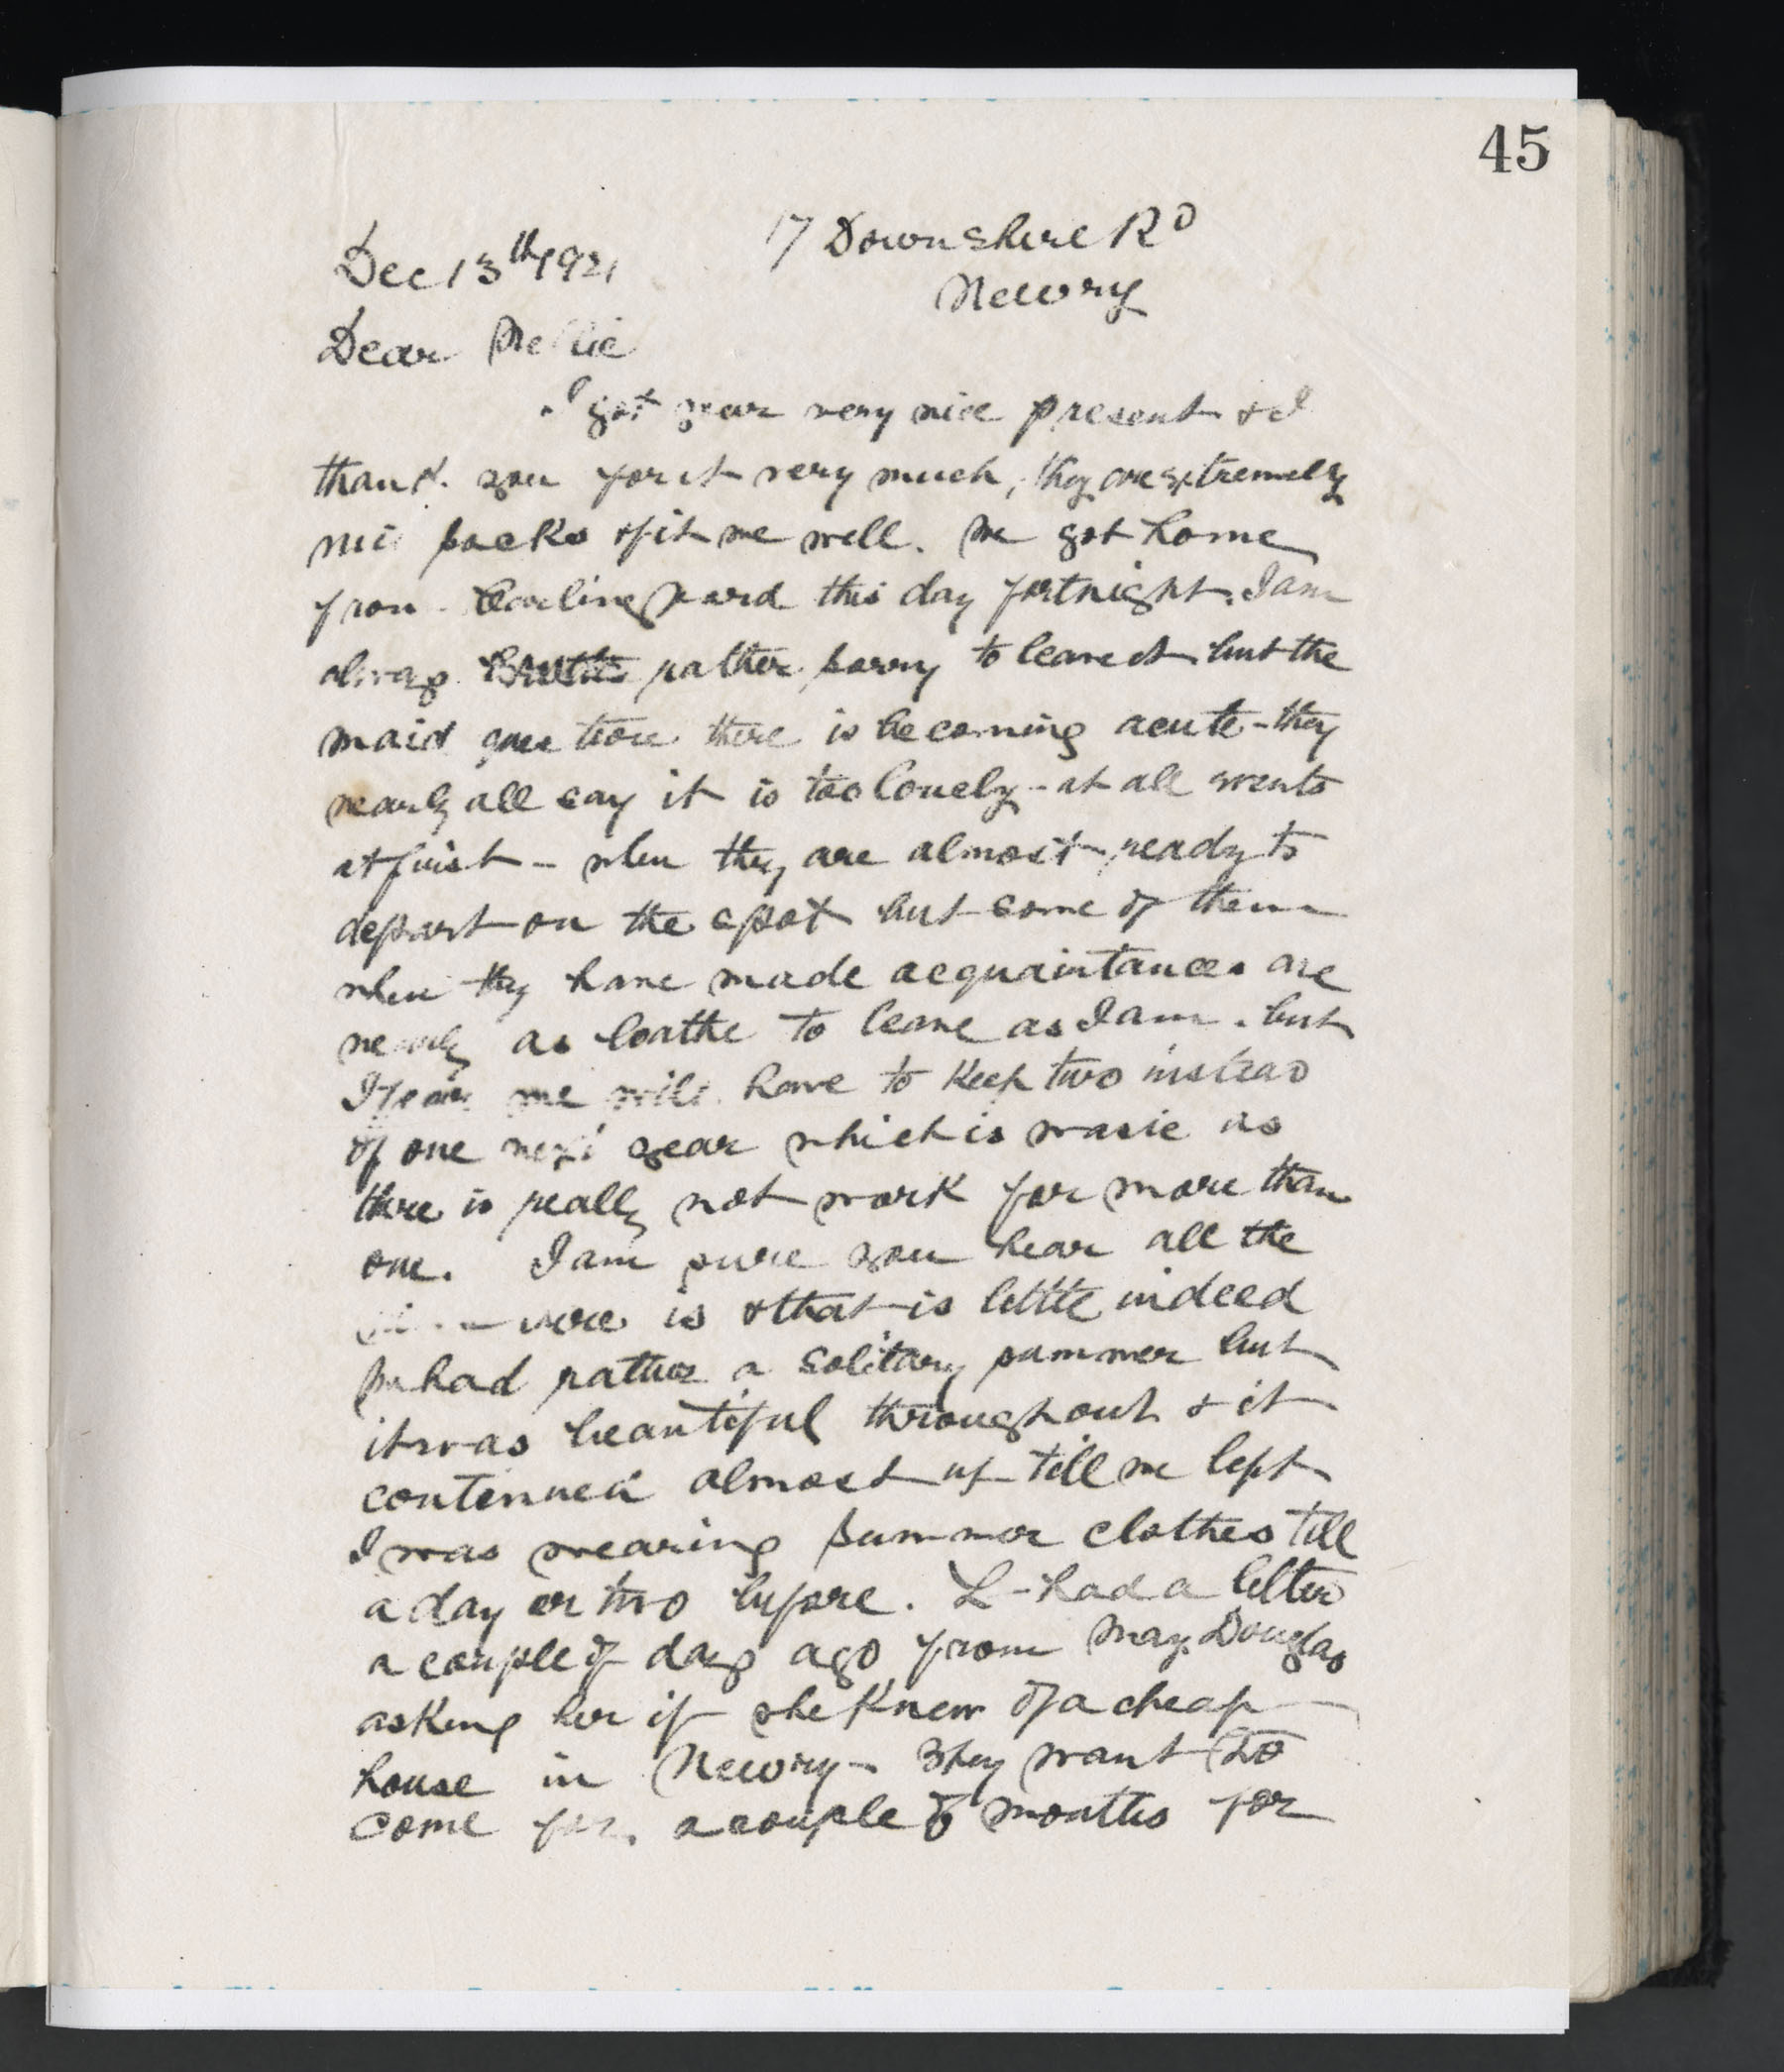 45
17 Downshire Rd
Dec 13th 1921
Newry
Dear Nellie
I got your very nice present & I
thank you for it very much, they are extremely
nice socks & fit me well. We got home
from Carlingford this day fortnight. I am
always rather sorry to leave it but the
maid question there is becoming acute - they
nearly all say it is too lonely - at all events
at first - when they are almost ready to
depart on the spot but some of them
when they have made acquaintances are
nearly as loathe to leave as I am. but
I fear we will have to keep two instead
of one next year which is waste as
there is really not work for more than
one. I am sure you hear all the
there is & that is little indeed
We had rather a solitary summer but
it was beautiful throughout & it
continued almost up till we left
I was wearing summer clothes till
a day or two before. L - had a letter
a couple of days ago from May Douglas
asking her if she knew of a cheap
house in Newry - They want to
come for a couple of months for